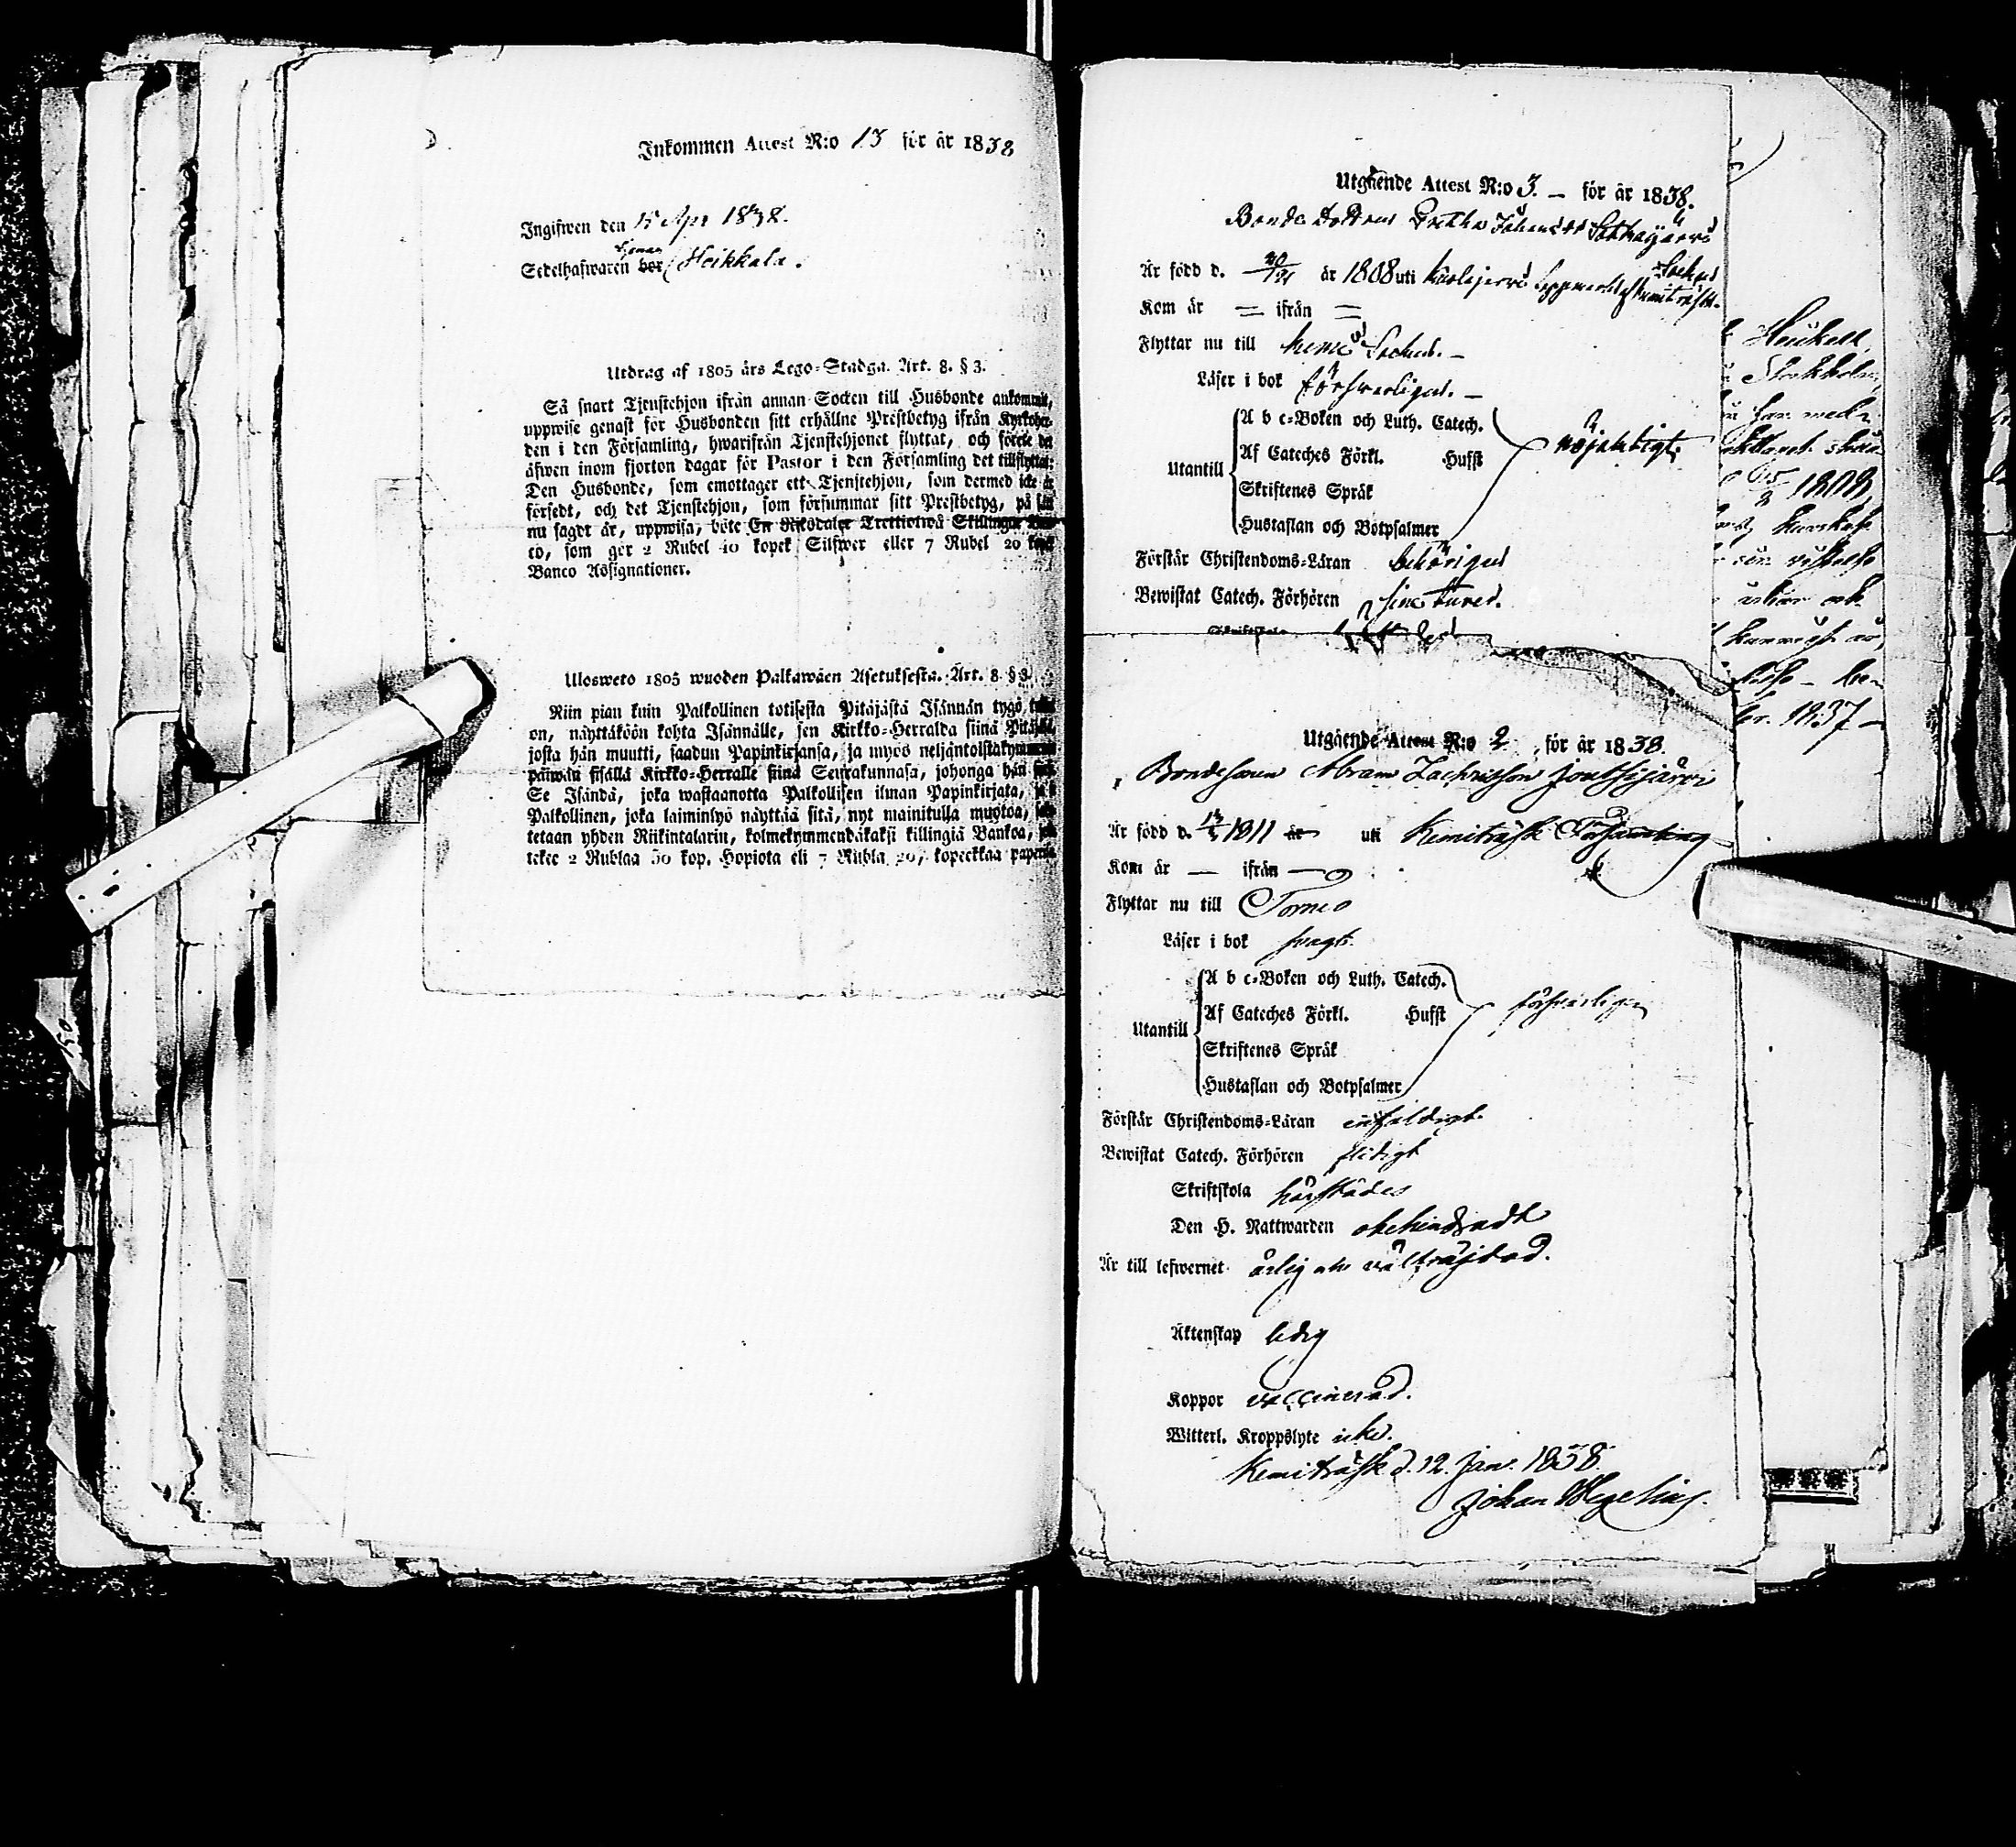 Inkommen Attest N:o 13 för år 1838
Ingifwen den 15 Apr 1838.
tjenar
Sedelhafwaren bor Heikkala.
Utdrag af 1805 års Lego-Stadga. Art. 8. § 3.
Så snart Tjenstehjon ifrån annan Socken till Husbonde ankommit,
uppwise genast för Husbonden sitt erhållne Prestbetyg ifrån Kyrkoher-
den i den Församling, hwarifrån Tjenstehjonet flyttat, och förete det
äfwen inom fjorton dagar för Pastor i den Församling det tillflyttat;
Den Husbonde, som emottager ett Tjenstehjon, som dermed icke är
försedt, och det Tjenstehjon, som försummar sitt Prestbetyg, på sätt
nu sagdt är, uppwisa, böte En Riksdaler Trettiotwå Skillingar Ban-
co, som gör 2 Rubel 40 kopek Silfwer eller 7 Rubel 20 kopek
Banco Assignationer.
Ulosweto 1805 wuoden Palkawäen Asetuksesta. Art. 8 § 3.
Niin pian kuin Palkollinen toisesta Pitäjästä Isännän tygö
on, näyttäköön kohta Isännälle, sen Kirkko-Herralda siinä Pitäjäs
josta hän muutti, saadun Papinkirjansa, ja myös neljäntoistakymmenen
päiwän sisällä Kirkko-Herralle siinä Seurakunnasa, johonga hän
Se Isändä, joka wastaanotta Palkollisen ilman Papinkirjata,
Palkollinen, joka laiminlyö näyttää sitä, nyt mainitulla muotoa,
tetaan yhden Riikintalarin, kolmekymmendäkaksi killingiä Bankoa,
tekee 2 Rublaa 50 kop. Hopiota eli 7 Rubla 20 kopeekkaa paperia
Utgående Attest N:o 3. – för år 1838.
Bonde Dottren Gretha Johansdr
Är född d. 20/21 år 1808 uti
Kom år = ifrån =
Flyttar nu till Kemi Socken. –
Läser i bok försvarligen. –
Utantill
A b c-Boken och Luth. Catech.
Af Cateches Förkl. Hufst
Skriftenes Språk
Hustaflan och Botpsalmer
nöjaktigt
Förstår Christendoms-Läran behörigen
Bewistat Catech. Förhören
Skriftskola
Utgående Attest N:o 2 för år 1838.
Bondesonen Abram Zachrisson Joutsijärvi
Är född d. 1811 år uti Kemiträsk Församling
Kom år — ifrån —
Flyttar nu till Torneo
Läser i bok svagt.
Utantill
A b c-Boken och Luth. Catech.
Af Cateches Förkl. Hufst
Skriftenes Språk
Hustaflan och Botpsalmer
försvarligen
Förstår Christendoms-Läran enfaldigt.
Bewistat Catech. Förhören flitigt
Skriftskola härstädes
Den H. Nattwarden obehindradt
Är till lefwernet ärlig och välfräjdad.
Äktenskap ledig
Koppor vaccinerad.
Witterl. Kroppslyte icke.
Kemiträsk d. 12. Jan. 1838.
Johan Wegelius.
Stockholm
1808
1837